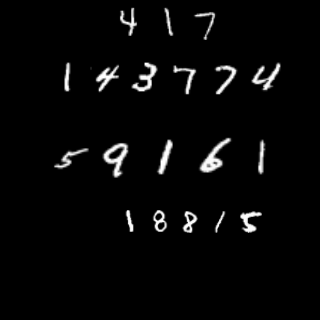 4 1 7
1 4 3 7 7 4
5 9 1 6 1
1 8 8 1 5